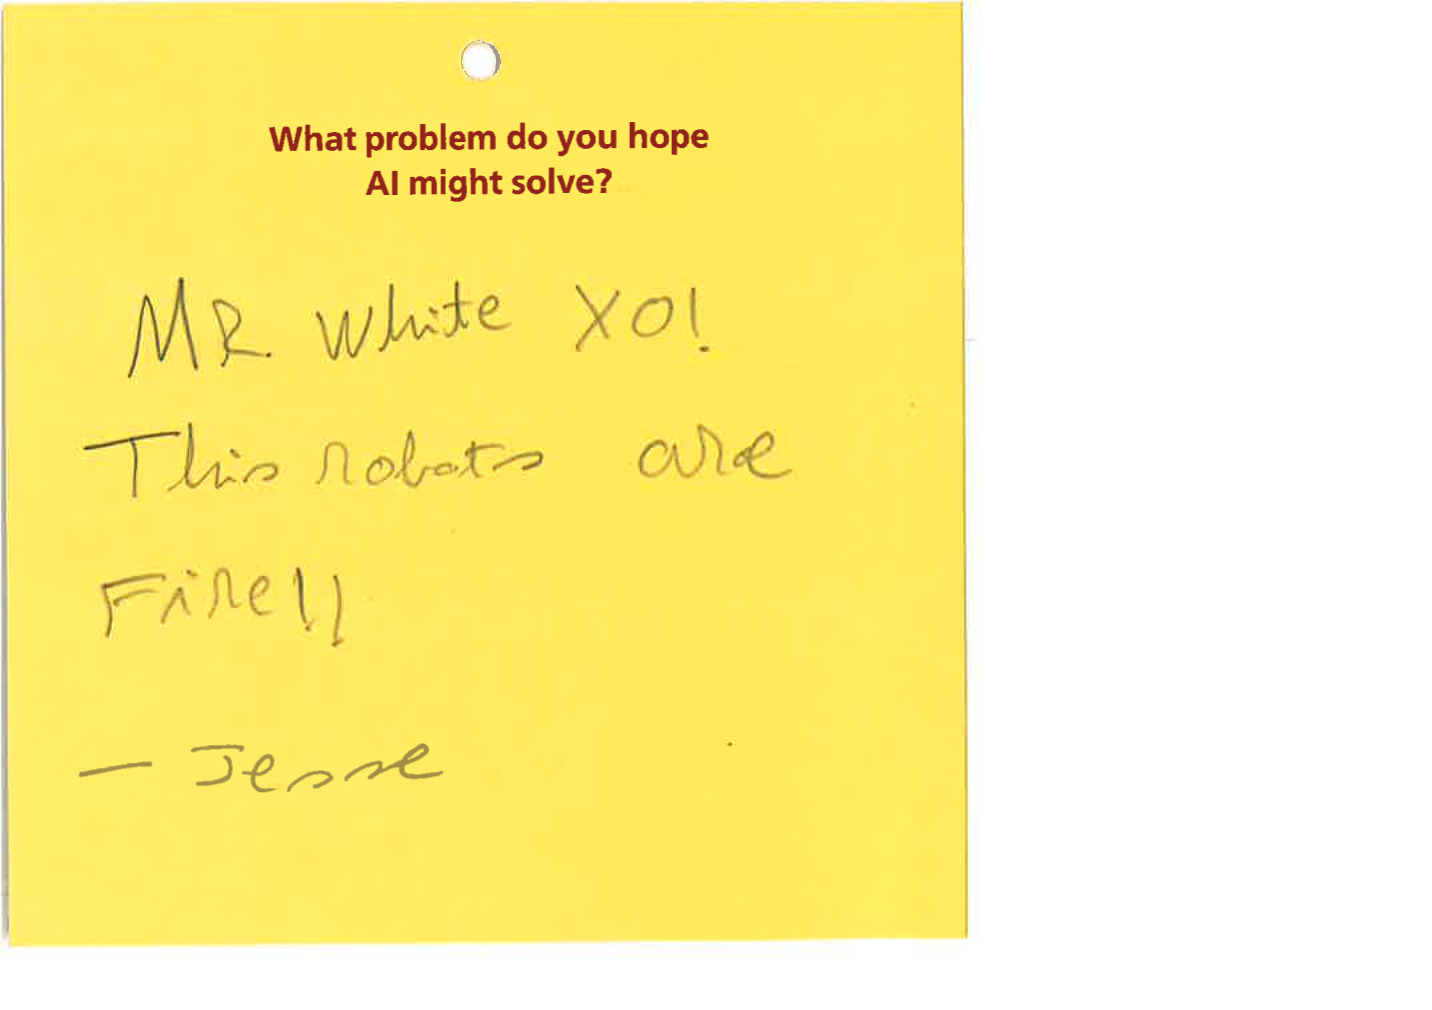 What problem do you hope
AI might solve?
MR. White XO!
This robots are
Fire!!
— Jesse